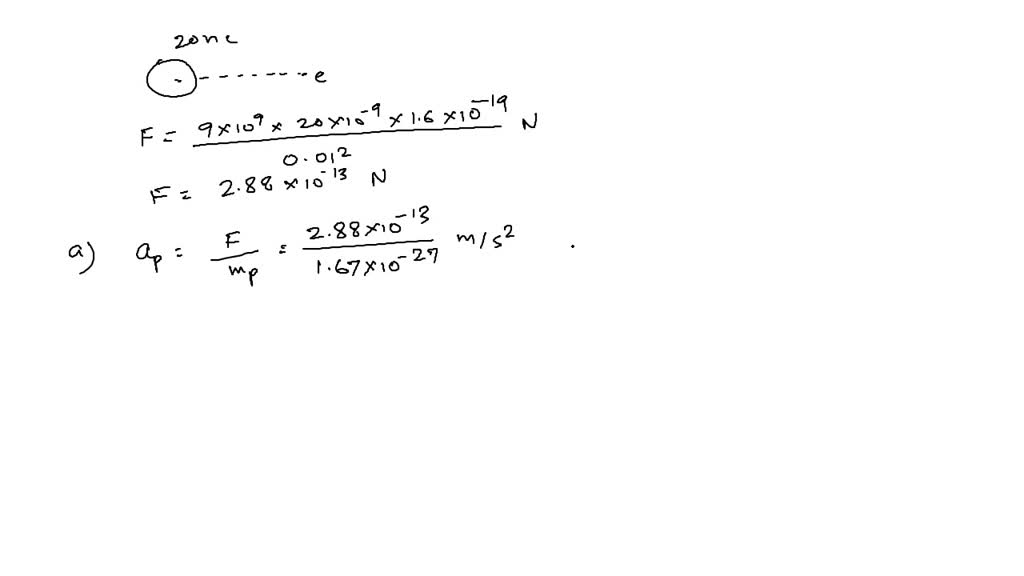 20nc
e
F = 9×10⁹ × 20×10⁻⁹ × 1.6×10⁻¹⁹ / 0.01² N
F = 2.88×10⁻¹³ N
a) aₚ = F / mₚ = 2.88×10⁻¹³ / 1.67×10⁻²⁷ m/s²